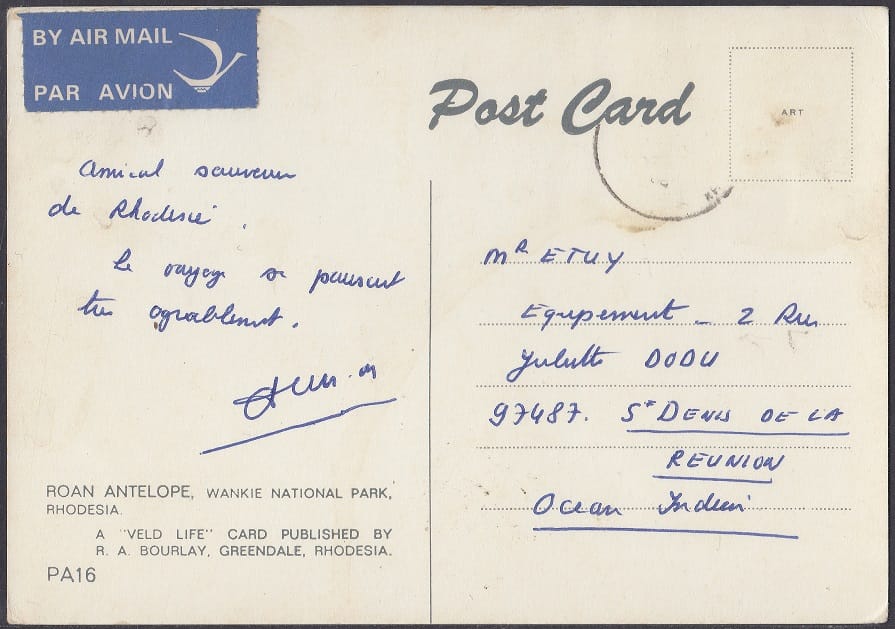 BY AIR MAIL
PAR AVION
Post Card
ART
Amical souvenir
de Rhodésie.
Le voyage se poursuit
très agréablement.
ROAN ANTELOPE, WANKIE NATIONAL PARK,
RHODESIA.
A "VELD LIFE" CARD PUBLISHED BY
R. A. BOURLAY, GREENDALE, RHODESIA.
PA16
MR ETUY
Equipement - 2 Rue
Juliette DODU
97487. St DENIS DE LA
REUNION
Ocean Indien